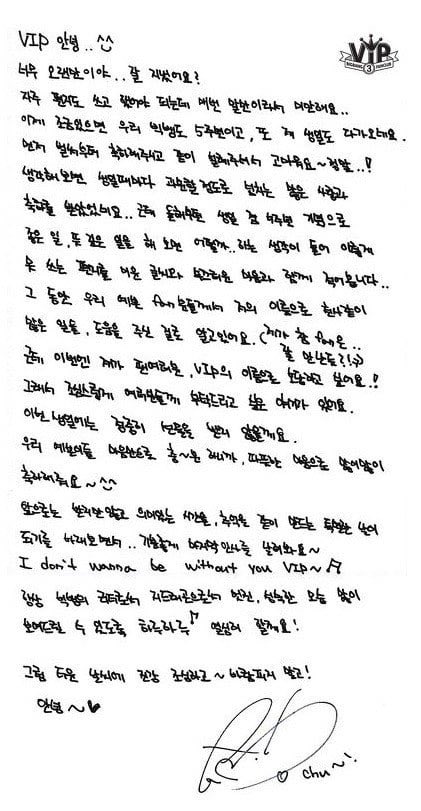 VIP 안녕.. ^^
VIP
BIGBANG 3 FANCLUB
너무 오랜만이야.. 잘 지냈어요?
자주 편지도 쓰고 했어야 되는데 매번 말만이라서 미안해요..
이제 조금있으면 우리 빅뱅도 5주년이고, 또 제 생일도 다가오네요.
먼저 벌써부터 축하해주시고 같이 설레주셔서 고마워요~ 정말..!!
생각해보면 생일때마다 과분할 정도로 넘치는 많은 사랑과
축하를 받았었네요.. 근데 올해부턴 생일 겸 5주년 기념으로
좋은 일, 뜻 깊은 일을 해 보면 어떨까.. 하는 생각이 들어 이렇게
못 쓰는 편지를 미운 글씨와 부끄러운 마음과 함께 적어봅니다..
그 동안 우리 예쁜 fan분들께서 저의 이름으로 천사같이
많은 일을, 도움을 주신 걸로 알고있어요. (제가 참 fan은..
잘 만난듯?! :))
근데 이번엔 제가 팬여러분, VIP의 이름으로 보답하고 싶어요.!!
그래서 조심스럽게 여러분들께 부탁드리고 싶은 이야기가 있어요.
이번 생일에는 정중히 선물을 받지 않을께요.
우리 예쁜이들 마음만으로 충~분 하니까, 따뜻한 마음으로 많이많이
축하해줘요~^^
앞으로는 받지만 않고 의미있는 시간을, 추억을 같이 만드는 특별한 날이
되기를 바래보면서.. 기분좋게 마지막 인사를 남겨봐요~
I don't wanna be without you VIP~♬
항상 빅뱅의 리더로서 지드래곤으로서 멋진, 성숙한 모습 많이
보여드릴 수 있도록 하루하루♪ 열심히 할께요!
그럼 더운 날씨에 건강 조심하고~ 바람피지 말고!
안녕~♥
chu~!